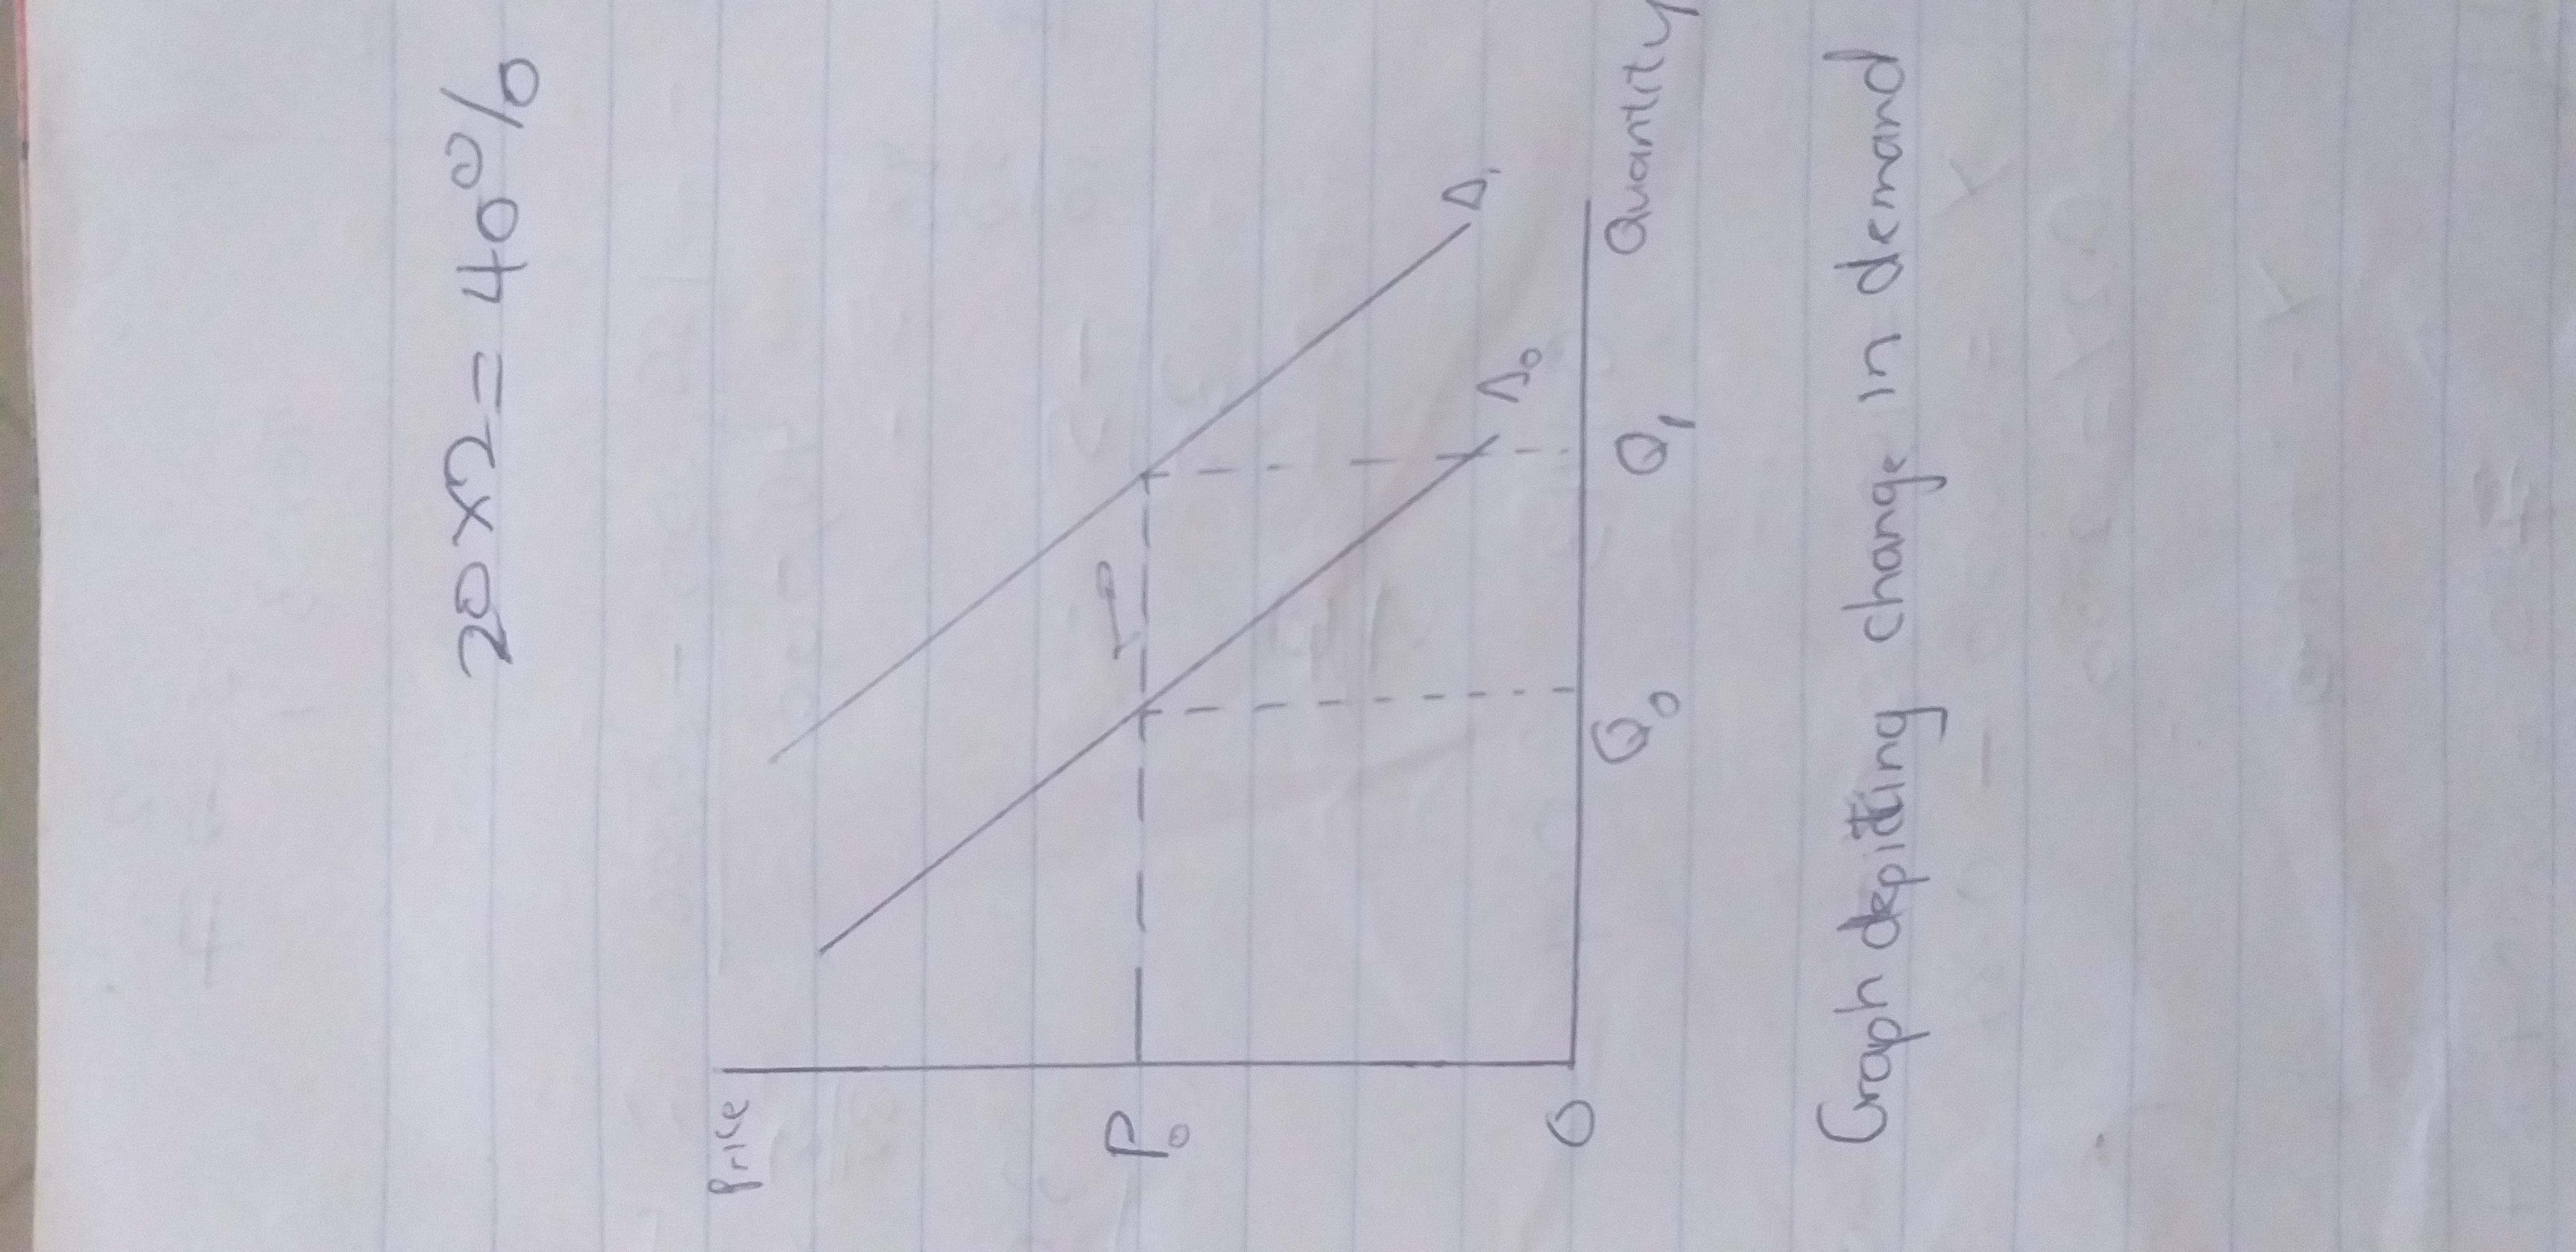 20 x 2 = 40%
Price
P₀
D₁
D₀
O
Q₀
Q₁
Quantity
Graph depicting change in demand